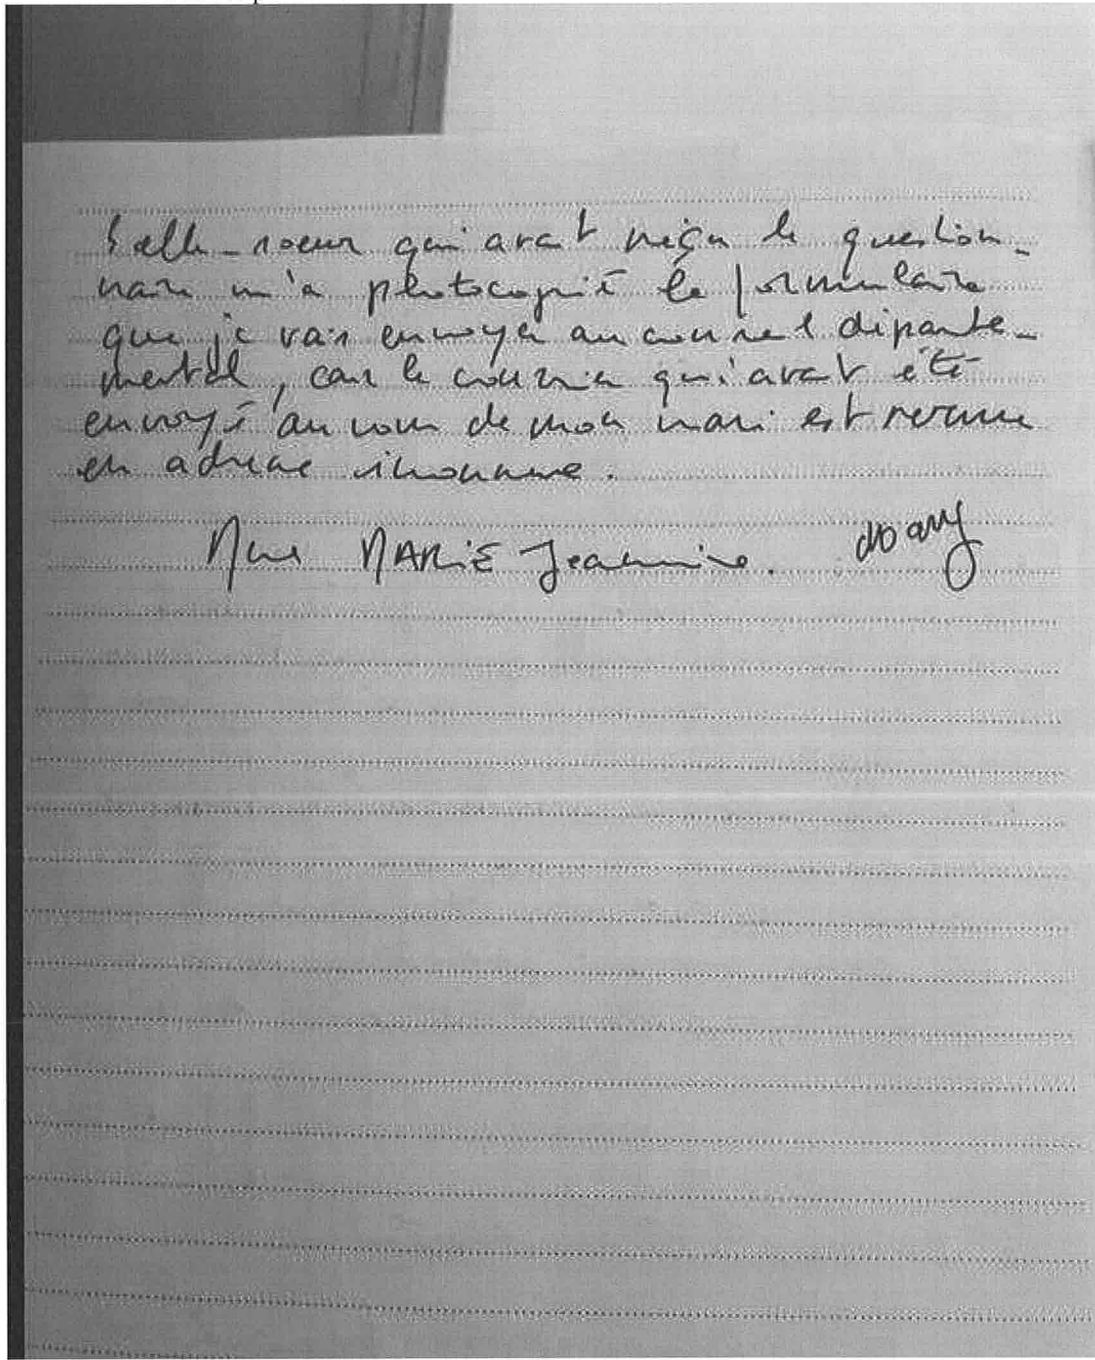 belle-soeur qui avait reçu le question-
naire m'a photocopié le formulaire
que je vais envoyer au conseil départe-
mental, car le courrier qui avait été
envoyé au nom de mon mari est revenu
en adresse inconnue.
Mme MARIE Jeannine.